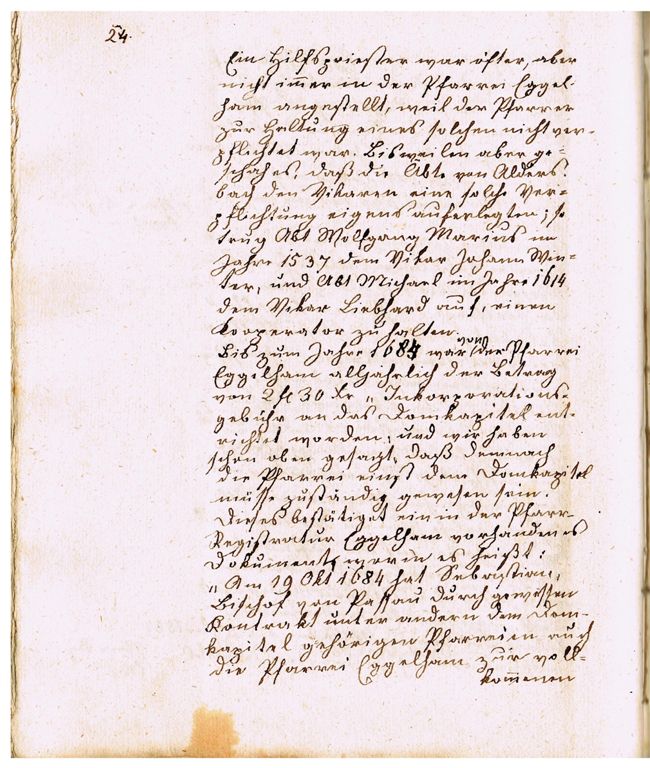 24.
Ein Hilfspriester war öfter, aber
nicht im̅er in der Pfarrei Eggel-
ham angestellt, weil der Pfarrer
zur Haltung eines solchen nicht ver-
pflichtet war. Bisweilen aber ge-
schah es, daß die Äbte von Alders-
bach den Vikaren eine solche Ver-
pflichtung eigens auferlegten; so
trug Abt Wolfgang Marius im
Jahre 1537 dem Vikar Johann Win-
ter, und Abt Michael im Jahre 1614
dem Vikar Liebhard auf, einen
Kooperator zu halten.
Bis zum Jahre 1684 war von der Pfarrei
Eggelham alljährlich der Betrag
von 2 fl 30 kr „Inkorporations-
gebühr an das Domkapitel ent-
richtet worden, und wir haben
schon oben gesagt, daß demnach
die Pfarrei einst dem Domkapitel
müsse zuständig gewesen sein.
Dieses bestätiget ein in der Pfarr-
Registratur Eggelham vorhandenes
Dokument, worin es heißt:
„Am 19 Okt 1684 hat Sebastian,
Bischof von Passau durch gewissen
Kontrakt unter andern dem Dom-
kapitel gehörigen Pfarreien auch
die Pfarrei Eggelham zur voll-
kom̅enen